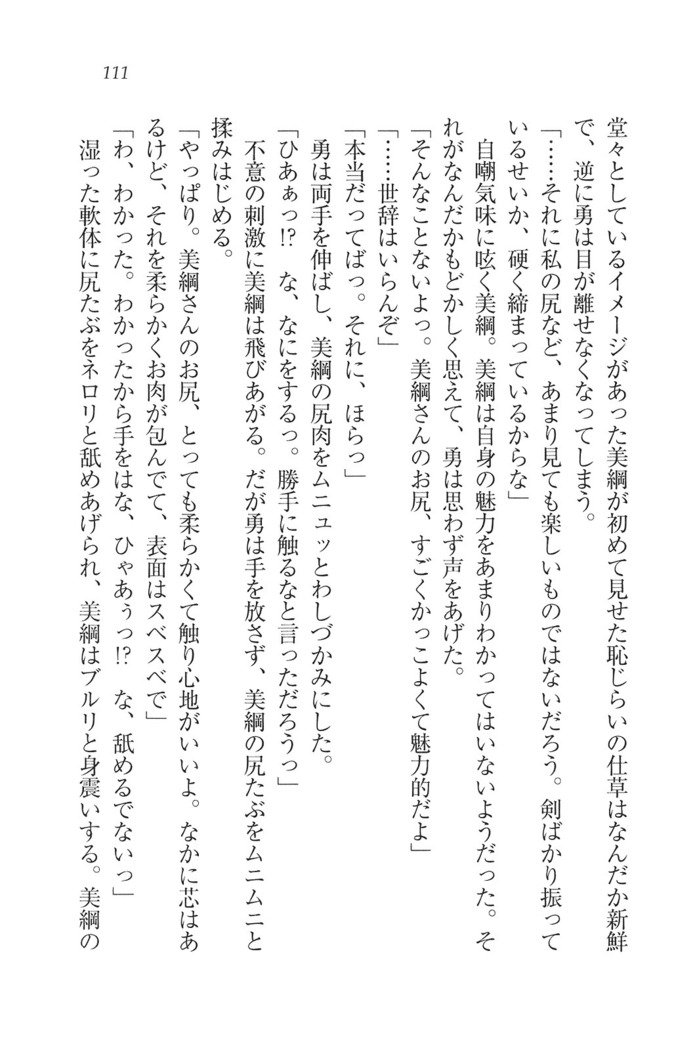 111
堂々としているイメージがあった美綱が初めて見せた恥じらいの仕草はなんだか新鮮
で、逆に勇は目が離せなくなってしまう。
「……それに私の尻など、あまり見ても楽しいものではないだろう。剣ばかり振って
いるせいか、硬く締まっているからな」
自嘲気味に呟く美綱。美綱は自身の魅力をあまりわかってはいないようだった。そ
れがなんだかもどかしく思えて、勇は思わず声をあげた。
「そんなことないよっ。美綱さんのお尻、すごくかっこよくて魅力的だよ」
「……世辞はいらんぞ」
「本当だってばっ。それに、ほらっ」
勇は両手を伸ばし、美綱の尻肉をムニュッとわしづかみにした。
「ひあぁっ!?　な、なにをするっ。勝手に触るなと言っただろうっ」
不意の刺激に美綱は飛びあがる。だが勇は手を放さず、美綱の尻たぶをムニムニと
揉みはじめる。
「やっぱり。美綱さんのお尻、とっても柔らかくて触り心地がいいよ。なかに芯はあ
るけど、それを柔らかくお肉が包んでて、表面はスベスベで」
「わ、わかった。わかったから手をはな、ひゃあぅっ!?　な、舐めるでないっ」
湿った軟体に尻たぶをネロリと舐めあげられ、美綱はブルリと身震いする。美綱の